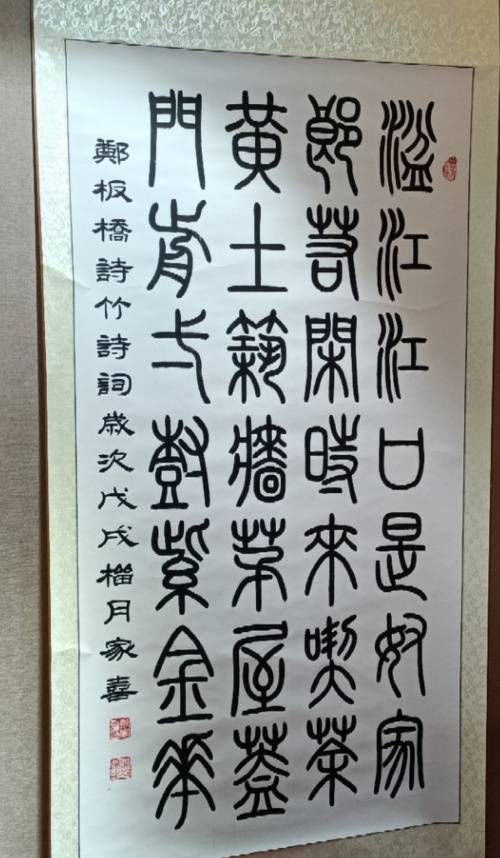 湓江江口是奴家
郎若閑時來喫茶
黃土築牆茅屋蓋
門前一樹紫金華
鄭板橋詩竹詩詞歲次戊戌榴月家喜